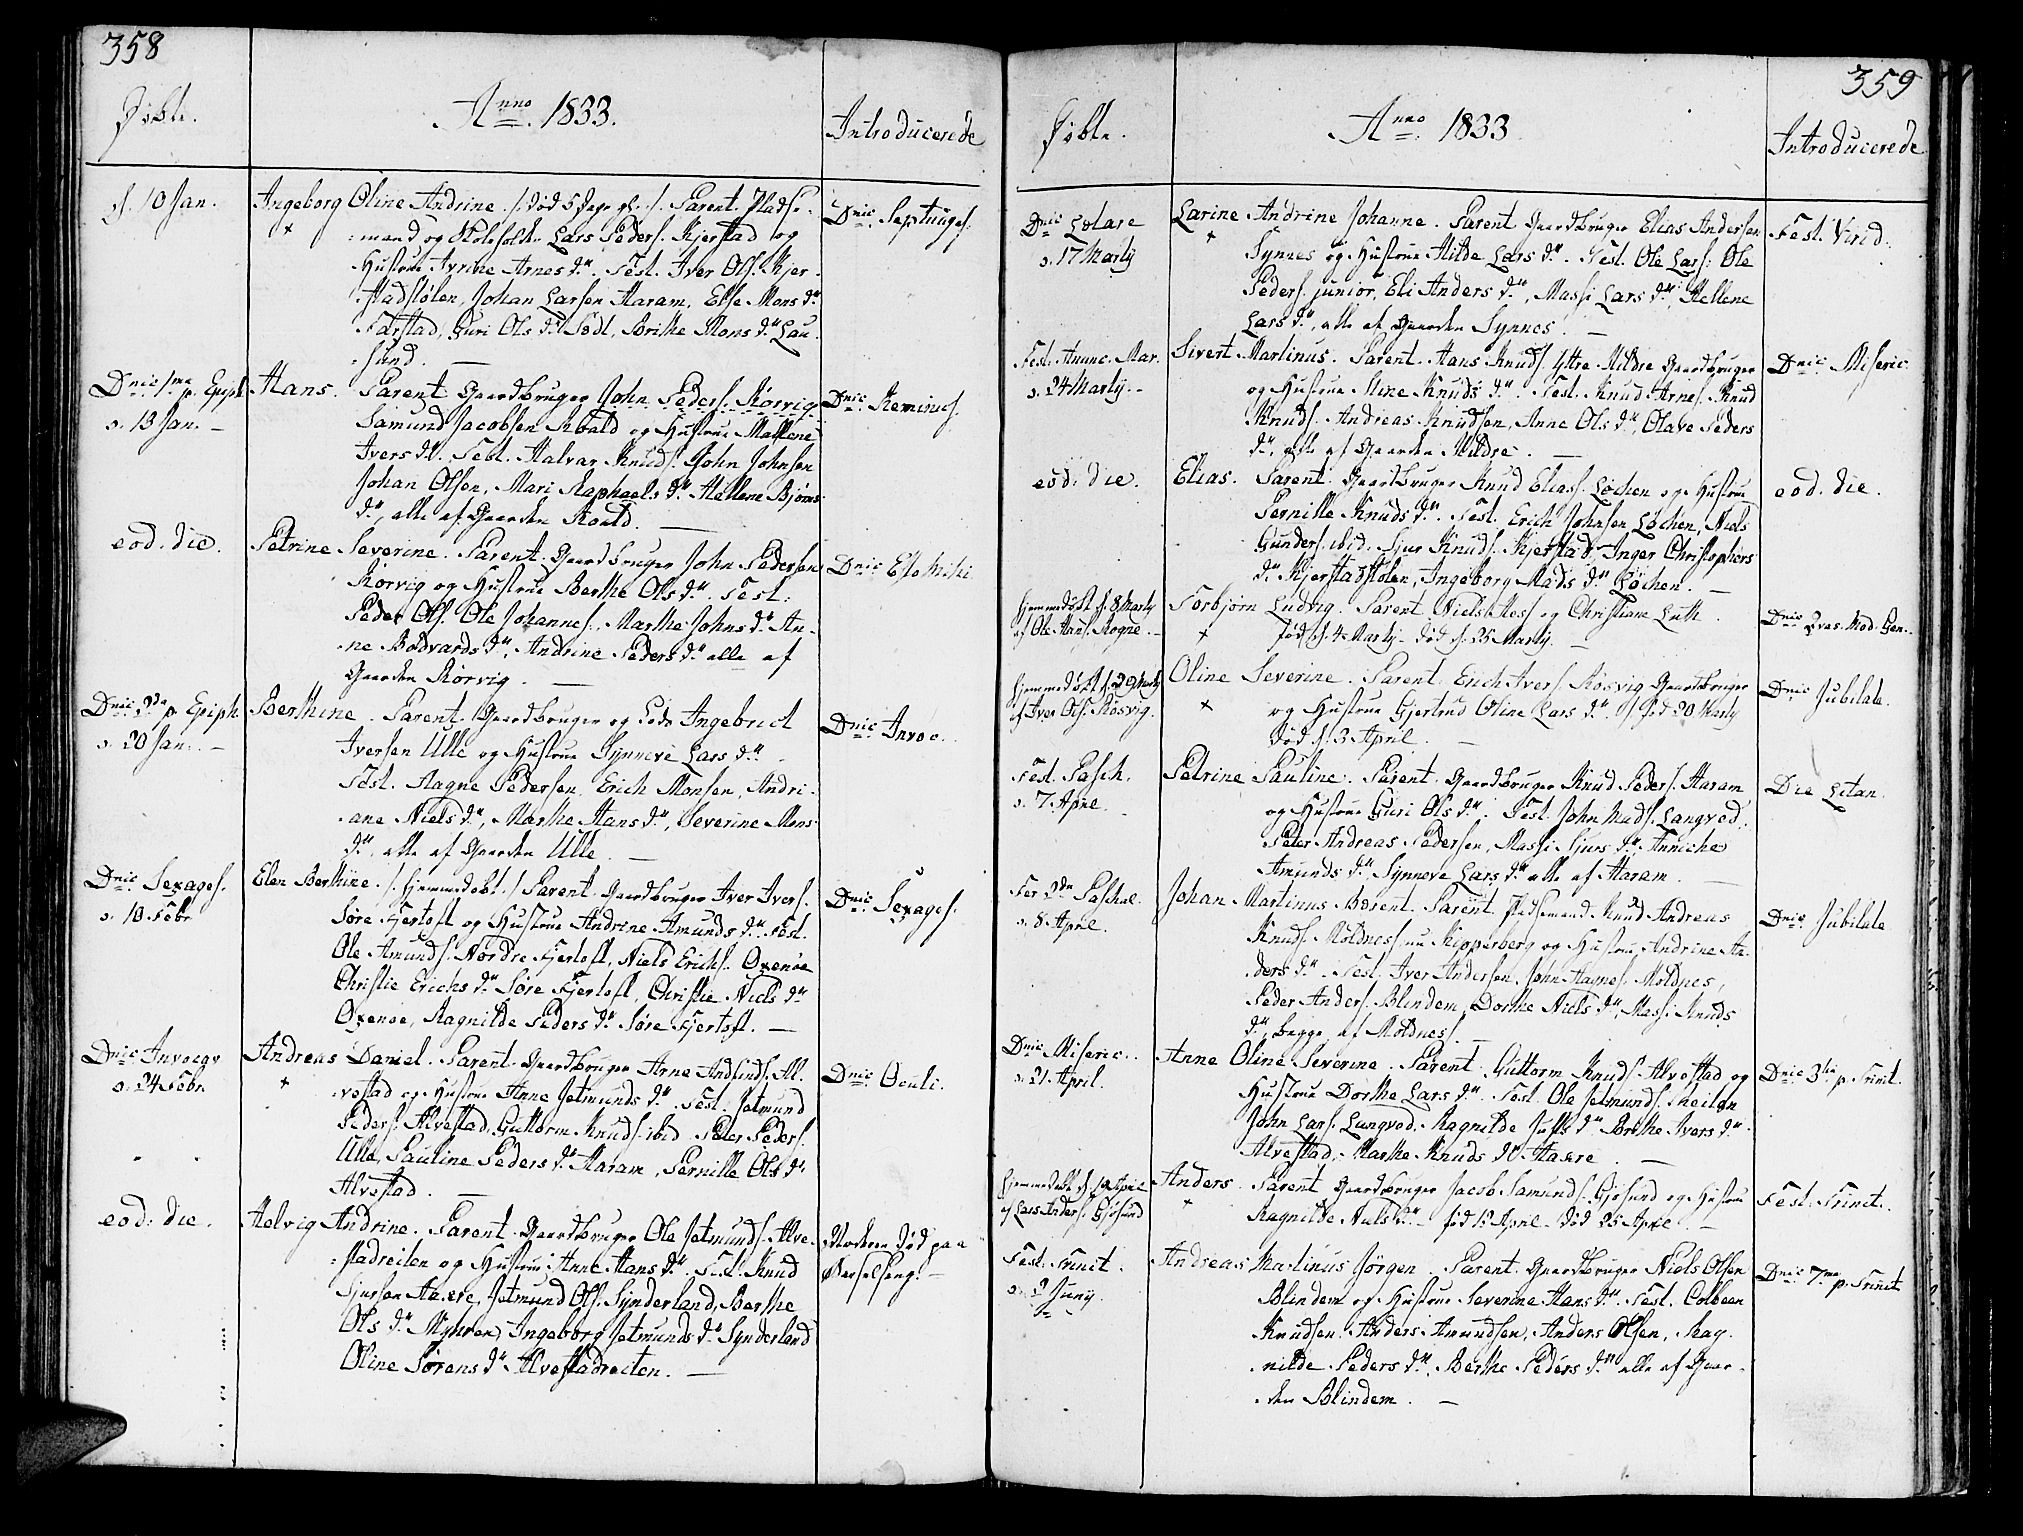 358
Døbte.
Anno 1833.
Introducerede
d. 10 Jan.
Ingeborg Oline Andrine. /: død 5 Dage gl. :/ Parent. Pladse-
mand og Skoleholder Lars Peders. Kjerstad og
Hustrue Avrine Arnes dtr. Test. Iver Ols. Kjer-
stadstølen, Johan Larsen Haram, Else Mons dtr
Farstad, Guri Ols dtr Sødl, Berthe Mons dtr Lau-
sund.
Dnic. Septuages.
Dnic 1ma p. Epiph.
d. 13 Jan.
Hans. Parent. Gaardbruger John Peders. Rørvig
Samund Jacobsen Roald og Hustrue Mallene
Ivers dtr. Test. Halvar Knuds. John Johnsen
Johan Olsen, Mari Raphaels dtr. Hellene Bjørns
dtr, alle af Gaarden Roald.
Dnic Reminis.
eod. die.
Petrine Severine. Parent. Gaardbruger John Pedersen
Rørvig og Hustrue Berthe Ols dtr. Test.
Peder Ols. Ole Johannes. Marthe Johns dtr An-
ne Bodvards dtr, Andrine Peders dtr alle af
Gaarden Rørvig.
Dnic Esto Mihi
Dnic 2da p. Epiph.
d. 20 Jan.
Berthine. Parent. Gaardbruger og Lods Ingebrict
Iversen Ulle og Hustrue Synneve Lars dtr
Test. Aagne Pedersen, Erich Monsen, Andri-
ane Niels dtr, Marthe Hans dtr, Severine Mons
dtr, alle af Gaarden Ulle.
Dnic Invoc.
Dnic Sexages.
d. 10 Febr.
Elen Berthine. /: hjemmedøbt :/ Parent. Gaardbruger Iver Ivers.
Søre Fjertoft og Hustrue Andrine Amunds dtr. Test.
Ole Amunds. Nordre Fjertoft, Niels Erichs. Oxenøe
Christie Erichs dtr Søre Fjertoft, Christie Niels dtr
Oxenøe, Ragnilde Peders dtr Søre Fjertoft.
Dnic Sexages.
Dnic Invocav
d. 24 Febr
Andreas Daniel. Parent. Gaardbruger Arne Andsinds. Al-
vestad og Hustrue Anne Jetmunds dtr. Test. Jetmund
Peders. Alvestad, Guttorm Knuds. ibid Peter Peders.
Ulle, Pauline Peders dtr Haram, Pernille Ols dtr
Alvestad.
Dnic Oculi.
eod. die.
Helvig Andrine. Parent. Gaardbruger Ole Jetmunds. Alve-
stadreiten og Hustrue Anne Hans dtr. Test. Knud
Sjursen Haxere, Jetmund Ols. Synderland, Berthe
Ols dtr Myhren, Ingeborg Jetmunds dtr Synderland
Oline Sørens dtr Alvestadreiten.
Moderen død paa
Barselseng.
359
Døbte.
Anno 1833
Introducerede
Dnic Lætare
d. 17 Martij
Larine Andrine Johanne. Parent Gaardbruger Elias Andersen
Synnes og Hustrue Hilde Lars dtr. Test. Ole Lars: Ole
Peders. junior, Eli Anders dtr, Massi Lars dtr, Hellene
Lars dtr, alle af Gaarden Synnes.
Fest. Virid.
Fest. Anunc. Mar.
d. 24 Martij.
Sivert Martinus. Parent. Hans Knuds. Yttre Mildre Gaardbruger
og Hustrue Mine Knuds dtr. Test. Knud Arnes. Knud
Knuds. Andreas Knudsen, Anne Ols dtr, Olave Peders
dtr, alle af Gaarden Mildre.
Dnic Miseric.
eod. die.
Elias. Parent. Gaardbruger Knud Elias. Løchen og Hustrue
Pernille Knuds dtr. Test. Erich Johnsen Løchen, Niels
Gunders. ibid. Sjur Knuds. Kjerstad, Inger Christophers
dtr. Kjerstadstølen, Ingeborg Mads dtr Løchen.
eod. die.
hjemmedøbt d. 8 Martij
af Ole Hans. Rogne.
Torbjørn Ludvig. Parent. Niels Moss og Christiane Luth
født d. 4 Martij - død d. 25 Martij.
Dnic Qvas. Mod. Gen.
hjemmedøbt d. 29 Martij
af Iver Ols. Røsvig.
Oline Severine. Parent. Erich Ivers. Røsvig Gaardbruger
og Hustrue Gjertrud Oline Lars dtr. født 20 Martij
død d. 3 April.
Dnic Jubilate.
Fest. Pasch.
d. 7 Apr.
Petrine Pauline. Parent. Gaardbruger Knud Peders. Haram
og Hustrue Guri Ols dtr. Test. John Mads. Langved.
Peter Andreas Pedersen, Massi Sjurs dtr Anniche
Amunds dtr, Synneve Lars dtr alle af Haram.
Die Litan.
Fer 2da Paschæ.
d. 8 April.
Johan Martinus Berent. Parent. Pladsemand Knud Andreas
Knuds. Moldnes, nu Klipperberg og Hustrue Andrine An-
ders dtr. Test. Iver Andersen, John Aagnes. Moldnes,
Peder Anders. Blindem, Dorthe Niels dtr, Massi Knuds
dtr, begge af Moldnes.
Dnic. Jubilate
Dnic Miseric.
d. 21 April.
Anne Oline Severine. Parent. Guttorm Knuds. Alvestad og
Hustrue Dorthe Lars dtr. Test. Ole Jetmunds. Reiten
John Lars. Lungved, Ragnilde Juels dtr Berthe Ivers dtr
Alvestad, Marthe Knuds dtr Haxere.
Dnic 3tia p. Trinit.
hjemmedøbt d. 19 April
af Lars Anders. Gjøsund
Anders. Parent Gaardbruger Jacob Samunds. Gjøsund og Hustrue
Ragnilde Niels dtr - født 13 April - død 25 April.
Fest. Trinit.
Fest. Trinit.
d. 2 Junij
Andreas Martinus Jørgen. Parent. Gaardbruger Niels Olsen
Blindem og Hustrue Severine Hans dtr. Test. Colbeen
Knudsen. Anders Amundsen, Anders Olsen, Rag-
nilde Peders dtr, Berthe Peders dtr alle af Gaar-
den Blindem.
Dnic 7ma p. Trinit